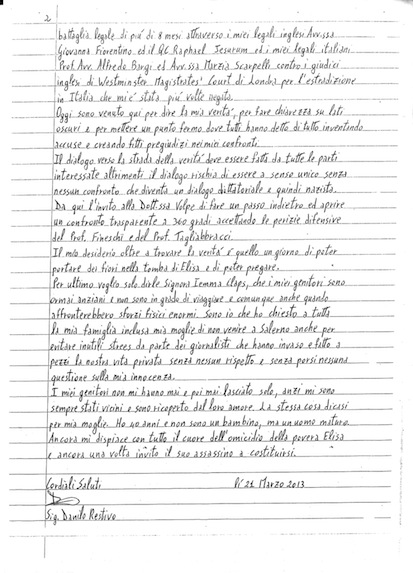 2
battaglia legale di piú di 8 mesi attraverso i miei legali inglesi Avv.ssa
Giovanna Fiorentino ed il QC Raphael Jesurum ed i miei legali italiani
Prof. Avv. Alfredo Bargi ed Avv.ssa Marzia Scarpelli contro i giudici
inglesi di Westminster Magistrates' Court di Londra per l'estradizione
in Italia che mi é stata piú volte negata.
Oggi sono venuto qui per dire la mia verita', per fare chiarezza su lati
oscuri e per mettere un punto fermo dove tutti hanno detto di tutto inventando
accuse e creando fitti pregiudizi nei miei confronti.
Il dialogo verso la strada della verita' deve essere fatta da tutte le parti
interessate altrimenti il dialogo rischia di essere a senso unico senza
nessun confronto che diventa un dialogo dittatoriale e quindi nazista.
Da qui l'invito alla Dott.ssa Volpe di fare un passo indietro ed aprire
un confronto trasparente a 360 gradi accettando le perizie difensive
del Prof. Fineschi e del Prof. Tagliabbracci.
Il mio desiderio oltre a trovare la verita' é quello un giorno di poter
portare dei fiori nella tomba di Elisa e di poter pregare.
Per ultimo voglio solo dirle Signora Iemma Claps, che i miei genitori sono
ormai anziani e non sono in grado di viaggiare e comunque anche quando
affronterebbero sforzi fisici enormi. Sono io che ho chiesto a tutta
la mia famiglia inclusa mia moglie di non venire a Salerno anche per
evitare inutili stress da parte dei giornalisti che hanno invaso e fatto a
pezzi la nostra vita privata senza nessun rispetto e senza porsi nessuna
questione sulla mia innocenza.
I miei genitori non mi hanno mai e poi mai lasciato solo, anzi mi sono
sempre stati vicini e sono ricoperto dal loro amore. La stessa cosa dicasi
per mia moglie. Ho 40 anni e non sono un bambino, ma un uomo maturo.
Ancora mi dispiace con tutto il cuore dell'omicidio della povera Elisa
e ancora una volta invito il suo assassino a costituirsi.
Cordiali Saluti
Li 21 Marzo 2013
Sig. Danilo Restivo